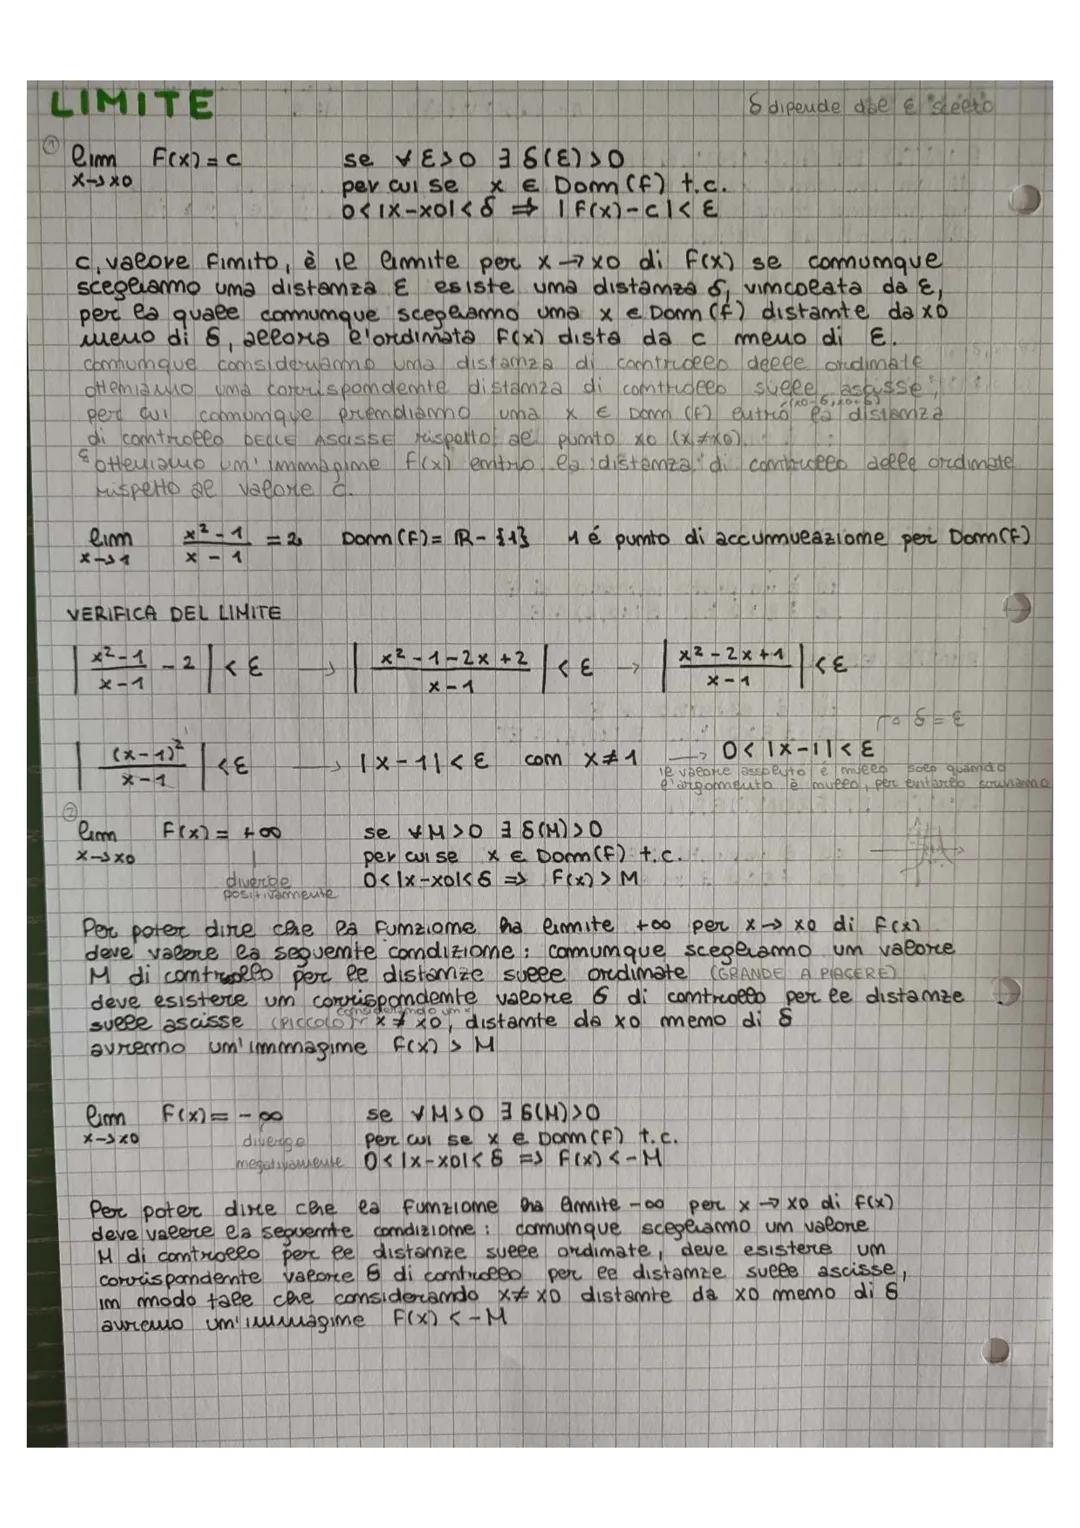 LIMITE
δ dipende dal ε scelto
① lim F(x) = c se ∀ε>0 ∃ δ(ε)>0
x→x0 per cui se x ∈ Dom(f) t.c.
0<|x-x0|<δ ⇒ |f(x)-c|<ε
c, valore finito, è il limite per x→x0 di f(x) se comunque
scegliamo una distanza ε esiste una distanza δ, vincolata da ε,
per la quale comunque scegliamo una x ∈ Dom(f) distante da x0
meno di δ, allora l'ordinata f(x) dista da c meno di ε.
comunque consideriamo una distanza di controllo delle ordinate
otteniamo una corrispondente distanza di controllo sulle ascisse,
(x0-δ, x0+δ)
per cui comunque prendiamo una x ∈ Dom (F) entro la distanza
di controllo DELLE ASCISSE rispetto al punto x0 (x≠x0).
otteniamo un'immagine f(x) entro la distanza di controllo delle ordinate
rispetto al valore c.
lim x²-1 = 2 Dom(F) = R - {1} 1 é punto di accumulazione per Dom(F)
x→1 x - 1
VERIFICA DEL LIMITE
| x²-1 - 2 | < ε → | x²-1-2x+2 | < ε → | x²-2x+1 | < ε
x-1 x-1 x-1
→ δ = ε
| (x-1)² | < ε → |x-1| < ε con x≠1 → 0<|x-1|<ε
x-1 il valore assoluto è nullo solo quando
l'argomento è nullo, per evitarlo scriviamo
② lim F(x) = +∞ se ∀M>0 ∃ δ(M)>0
x→x0 per cui se x ∈ Dom(F) t.c.
diverge 0<|x-x0|<δ ⇒ f(x)>M
positivamente
Per poter dire che la funzione ha limite +∞ per x→x0 di f(x)
deve valere la seguente condizione: comunque scegliamo un valore
M di controllo per le distanze sulle ordinate (GRANDE A PIACERE)
deve esistere un corrispondente valore δ di controllo per le distanze
considerando un
sulle ascisse (PICCOLO) x≠x0, distante da x0 meno di δ
avremo un'immagine f(x) > M
lim F(x) = -∞ se ∀M>0 ∃ δ(M)>0
x→x0 diverge per cui se x ∈ Dom(F) t.c.
negativamente 0<|x-x0|<δ ⇒ f(x)<-M
Per poter dire che la funzione ha limite -∞ per x→x0 di f(x)
deve valere la seguente condizione: comunque scegliamo un valore
M di controllo per le distanze sulle ordinate, deve esistere un
corrispondente valore δ di controllo per le distanze sulle ascisse,
in modo tale che considerando x≠x0 distante da x0 meno di δ
avremo un'immagine f(x) <-M